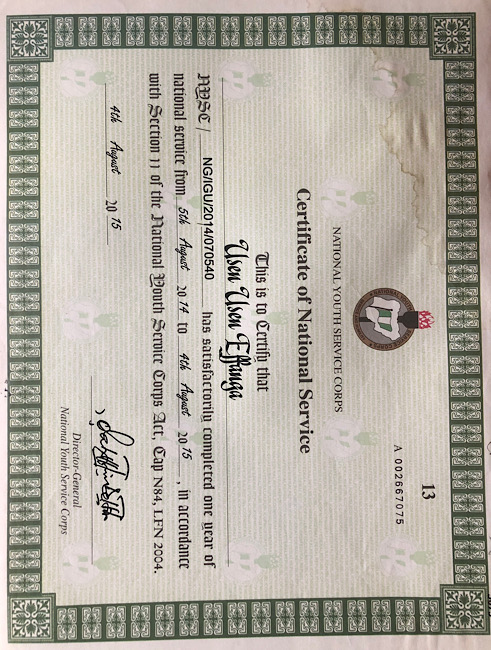 13
A 002667075
NATIONAL YOUTH SERVICE CORPS
Certificate of National Service
This is to Certify that
Usen Usen Effanga
NYSC/ NG/IGU/2014/070540 has satisfactorily completed one year of
national service from 5th August 2014 to 4th August 2015, in accordance
with Section 11 of the National Youth Service Corps Act, Cap N84, LFN 2004.
4th August 2015
Director-General
National Youth Service Corps